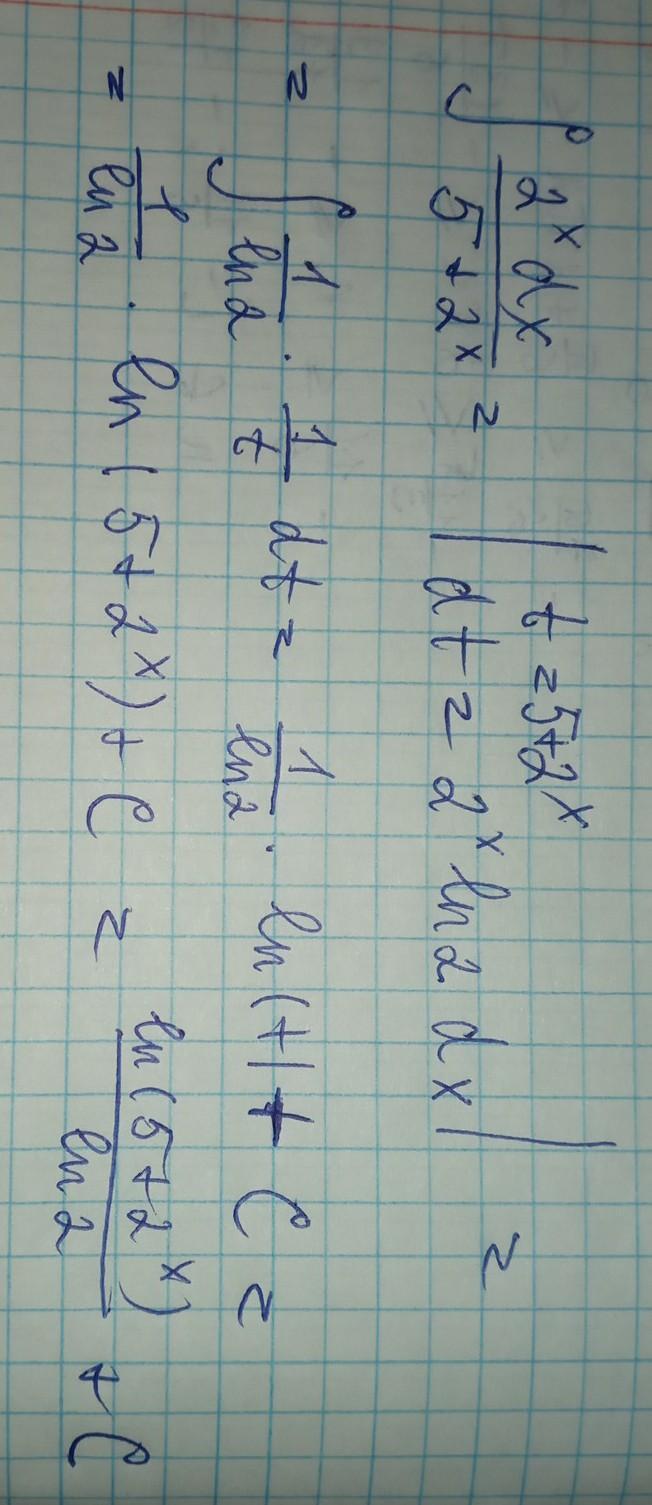 ∫ 2^x dx / (5 + 2^x) = | t = 5+2^x
dt = 2^x ln 2 dx | =
= ∫ 1/ln 2 · 1/t dt = 1/ln 2 · ln(t) + C =
= 1/ln 2 · ln(5 + 2^x) + C = ln(5 + 2^x) / ln 2 + C